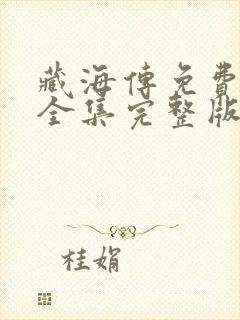 藏海傳免費
全集完整版
桂娟